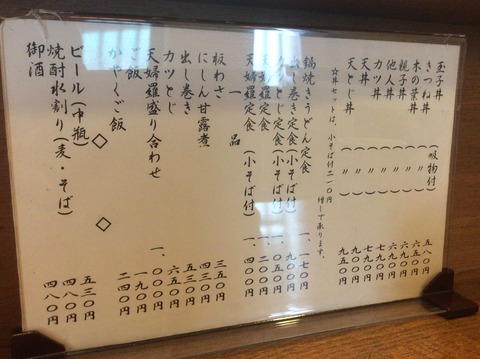 玉子丼 (吸物付) 五八〇円
きつね丼 ( 〃 )
木の葉丼 ( 〃 )
親子丼 ( 〃 )
他人丼 ( 〃 )
カツ丼 ( 〃 )
天丼 ( 〃 )
天とじ丼 ( 〃 ) 九五〇円
☆丼セットは、小そば付二一〇円増しで承ります。
鍋焼きうどん定食 一、一七〇円
出し巻き定食(小そば付) 九〇〇円
カツとじ定食(小そば付) 一、〇五〇円
天婦羅定食(小そば付) 一、四〇〇円
一品
板わさ 三五〇円
にしん甘露煮 四三〇円
出し巻き 五三〇円
カツとじ 六五〇円
天婦羅盛り合わせ 一、〇〇〇円
ご飯 一九〇円
かやくご飯 二四〇円
◇ ◇
ビール(中瓶) 五三〇円
焼酎水割り(麦・そば) 四八〇円
御酒 四八〇円